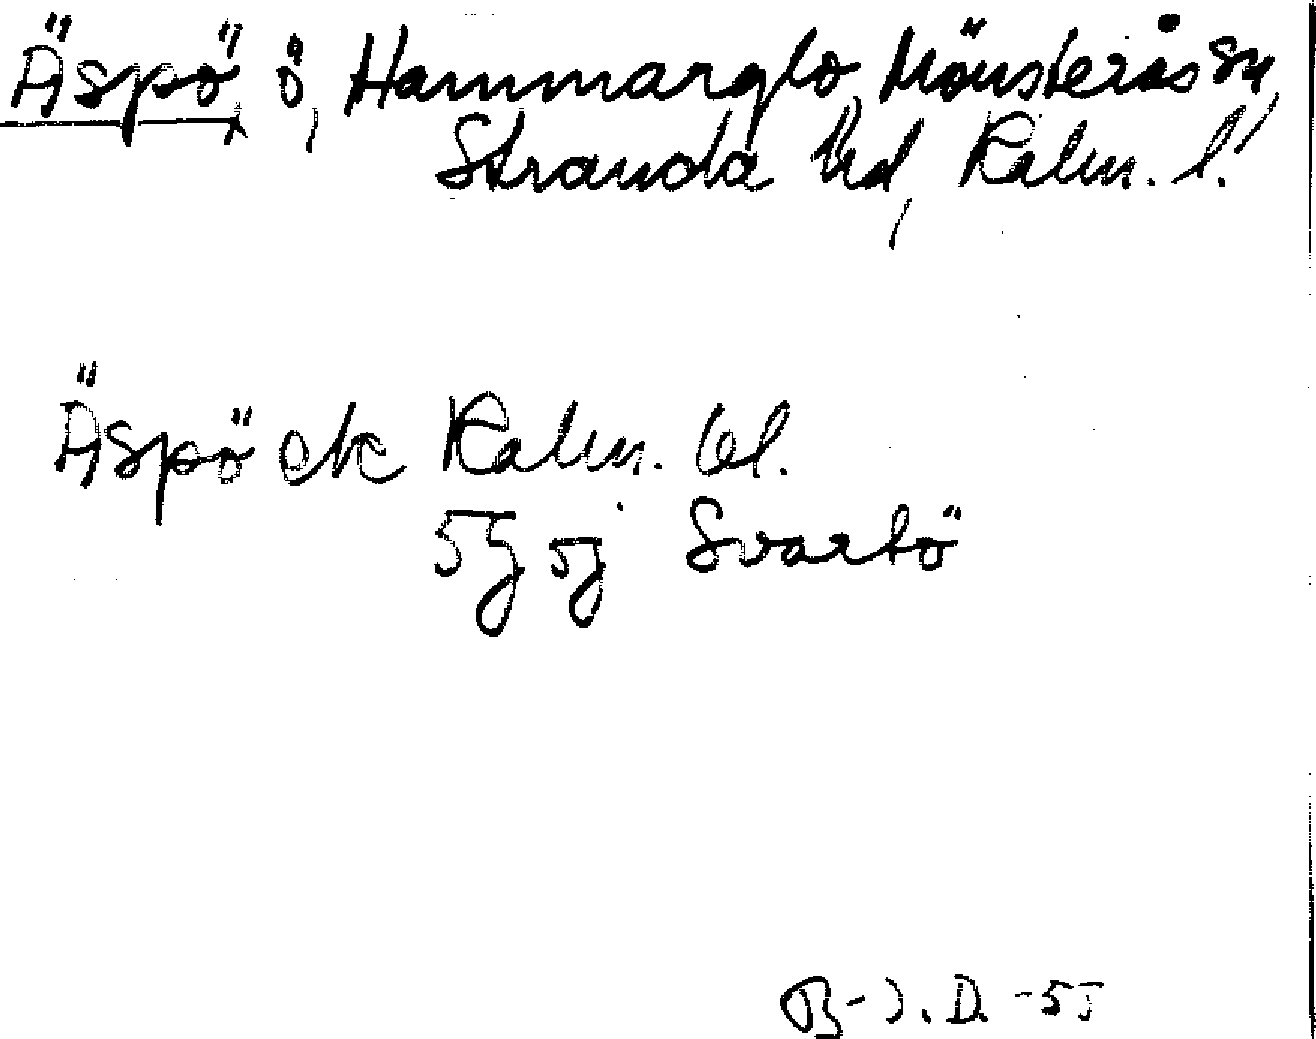 Äspö, ö, Hammarglo, Mönsterås sn,
Stranda hd, Kalm. l.
Äspö ek Kalm. bl.
5G 5j Svartö
B-J. D. -55